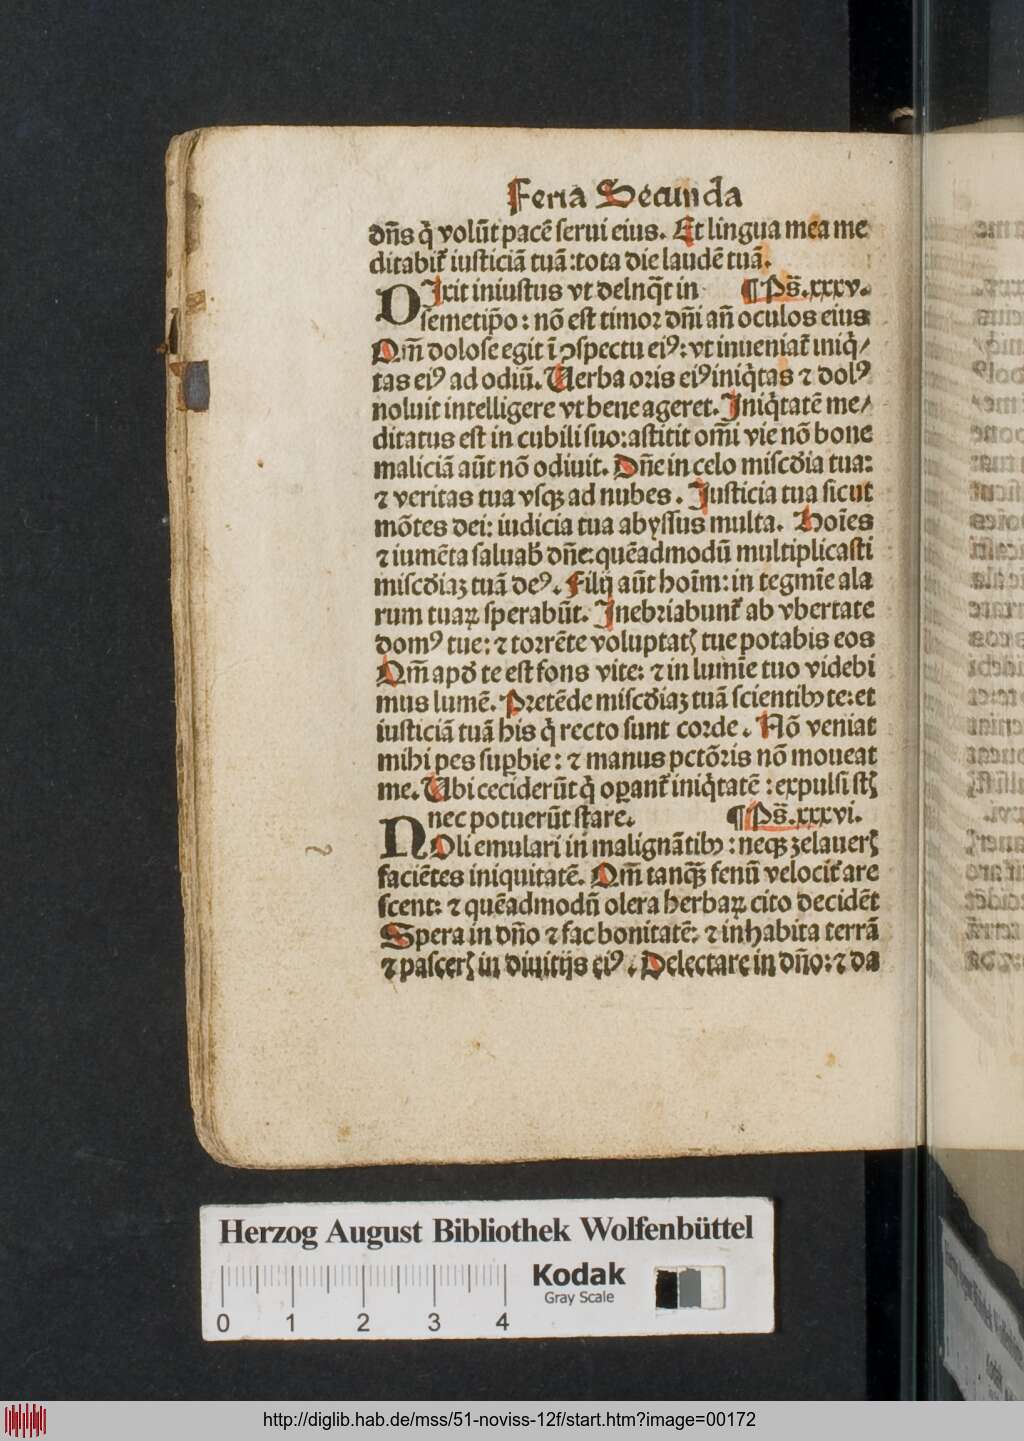 Feria Secunda
dn̄s q̇ volūt pacē serui eius. Et lingua mea me
ditabit᷑ iusticiā tuā: tota die laudē tuā.
DIxit iniustus vt delnq̄t in ¶ Ps̄. xxxv.
semetip̄o: nō est timoꝛ dn̄i an̄ oculos eius
Qm̄ dolose egit ī ꝯspectu eiꝰ: vt inueniat᷑ iniq̇/
tas eiꝰ ad odiū. Uerba oris eiꝰ iniq̇tas ⁊ dolꝰ
noluit intelligere vt bene ageret. Iniq̇tatē me/
ditatus est in cubili suo: astitit om̄i vie nō bone
maliciā aūt nō odiuit. Dn̄e in celo misc̄dia tua:
⁊ veritas tua vsqꝫ ad nubes. Iusticia tua sicut
mōtes dei: iudicia tua abyssus multa. Hoīes
⁊ iumēta saluab̄ dn̄e: quēadmodū multiplicasti
misc̄diaꝫ tuā deꝰ. Filij aūt hoīm: in tegmīe ala
rum tuaꝝ sperabūt. Inebꝛiabunt᷑ ab vbertate
domꝰ tue: ⁊ toꝛrēte voluptatꝭ tue potabis eos
Qm̄ apd̄ te est fons vite: ⁊ in lumīe tuo videbi
mus lumē. Pꝛetēde misc̄diaꝫ tuā scientibꝫ te: et
iusticiā tuā his q̇ recto sunt coꝛde. Nō veniat
mihi pes suꝑbie: ⁊ manus pctōꝛis nō moueat
me. Ubi ceciderūt q̇ oꝑant᷑ iniq̇tatē: expulsi st̄
nec potuerūt stare. ¶ Ps̄. xxxvi.
NOli emulari in malignātibꝫ: neqꝫ zelauerꝭ
faciētes iniquitatē. Qm̄ tanqꝫ̄ fenū velocit᷑ are
scent: ⁊ quēadmodū olera herbaꝝ cito decidēt
Spera in dn̄o ⁊ fac bonitatē: ⁊ inhabita terrā
⁊ pascerꝭ in diuitijs eiꝰ. Delectare in dn̄o: ⁊ da
Herzog August Bibliothek Wolfenbüttel
Kodak
Gray Scale
0 1 2 3 4
http://diglib.hab.de/mss/51-noviss-12f/start.htm?image=00172